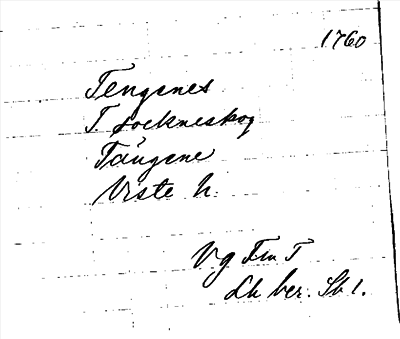 1760
Tengenes
T. sockneskog
Tängene
Viste h.
Vg Fru T
Lh ber. Sk 1.